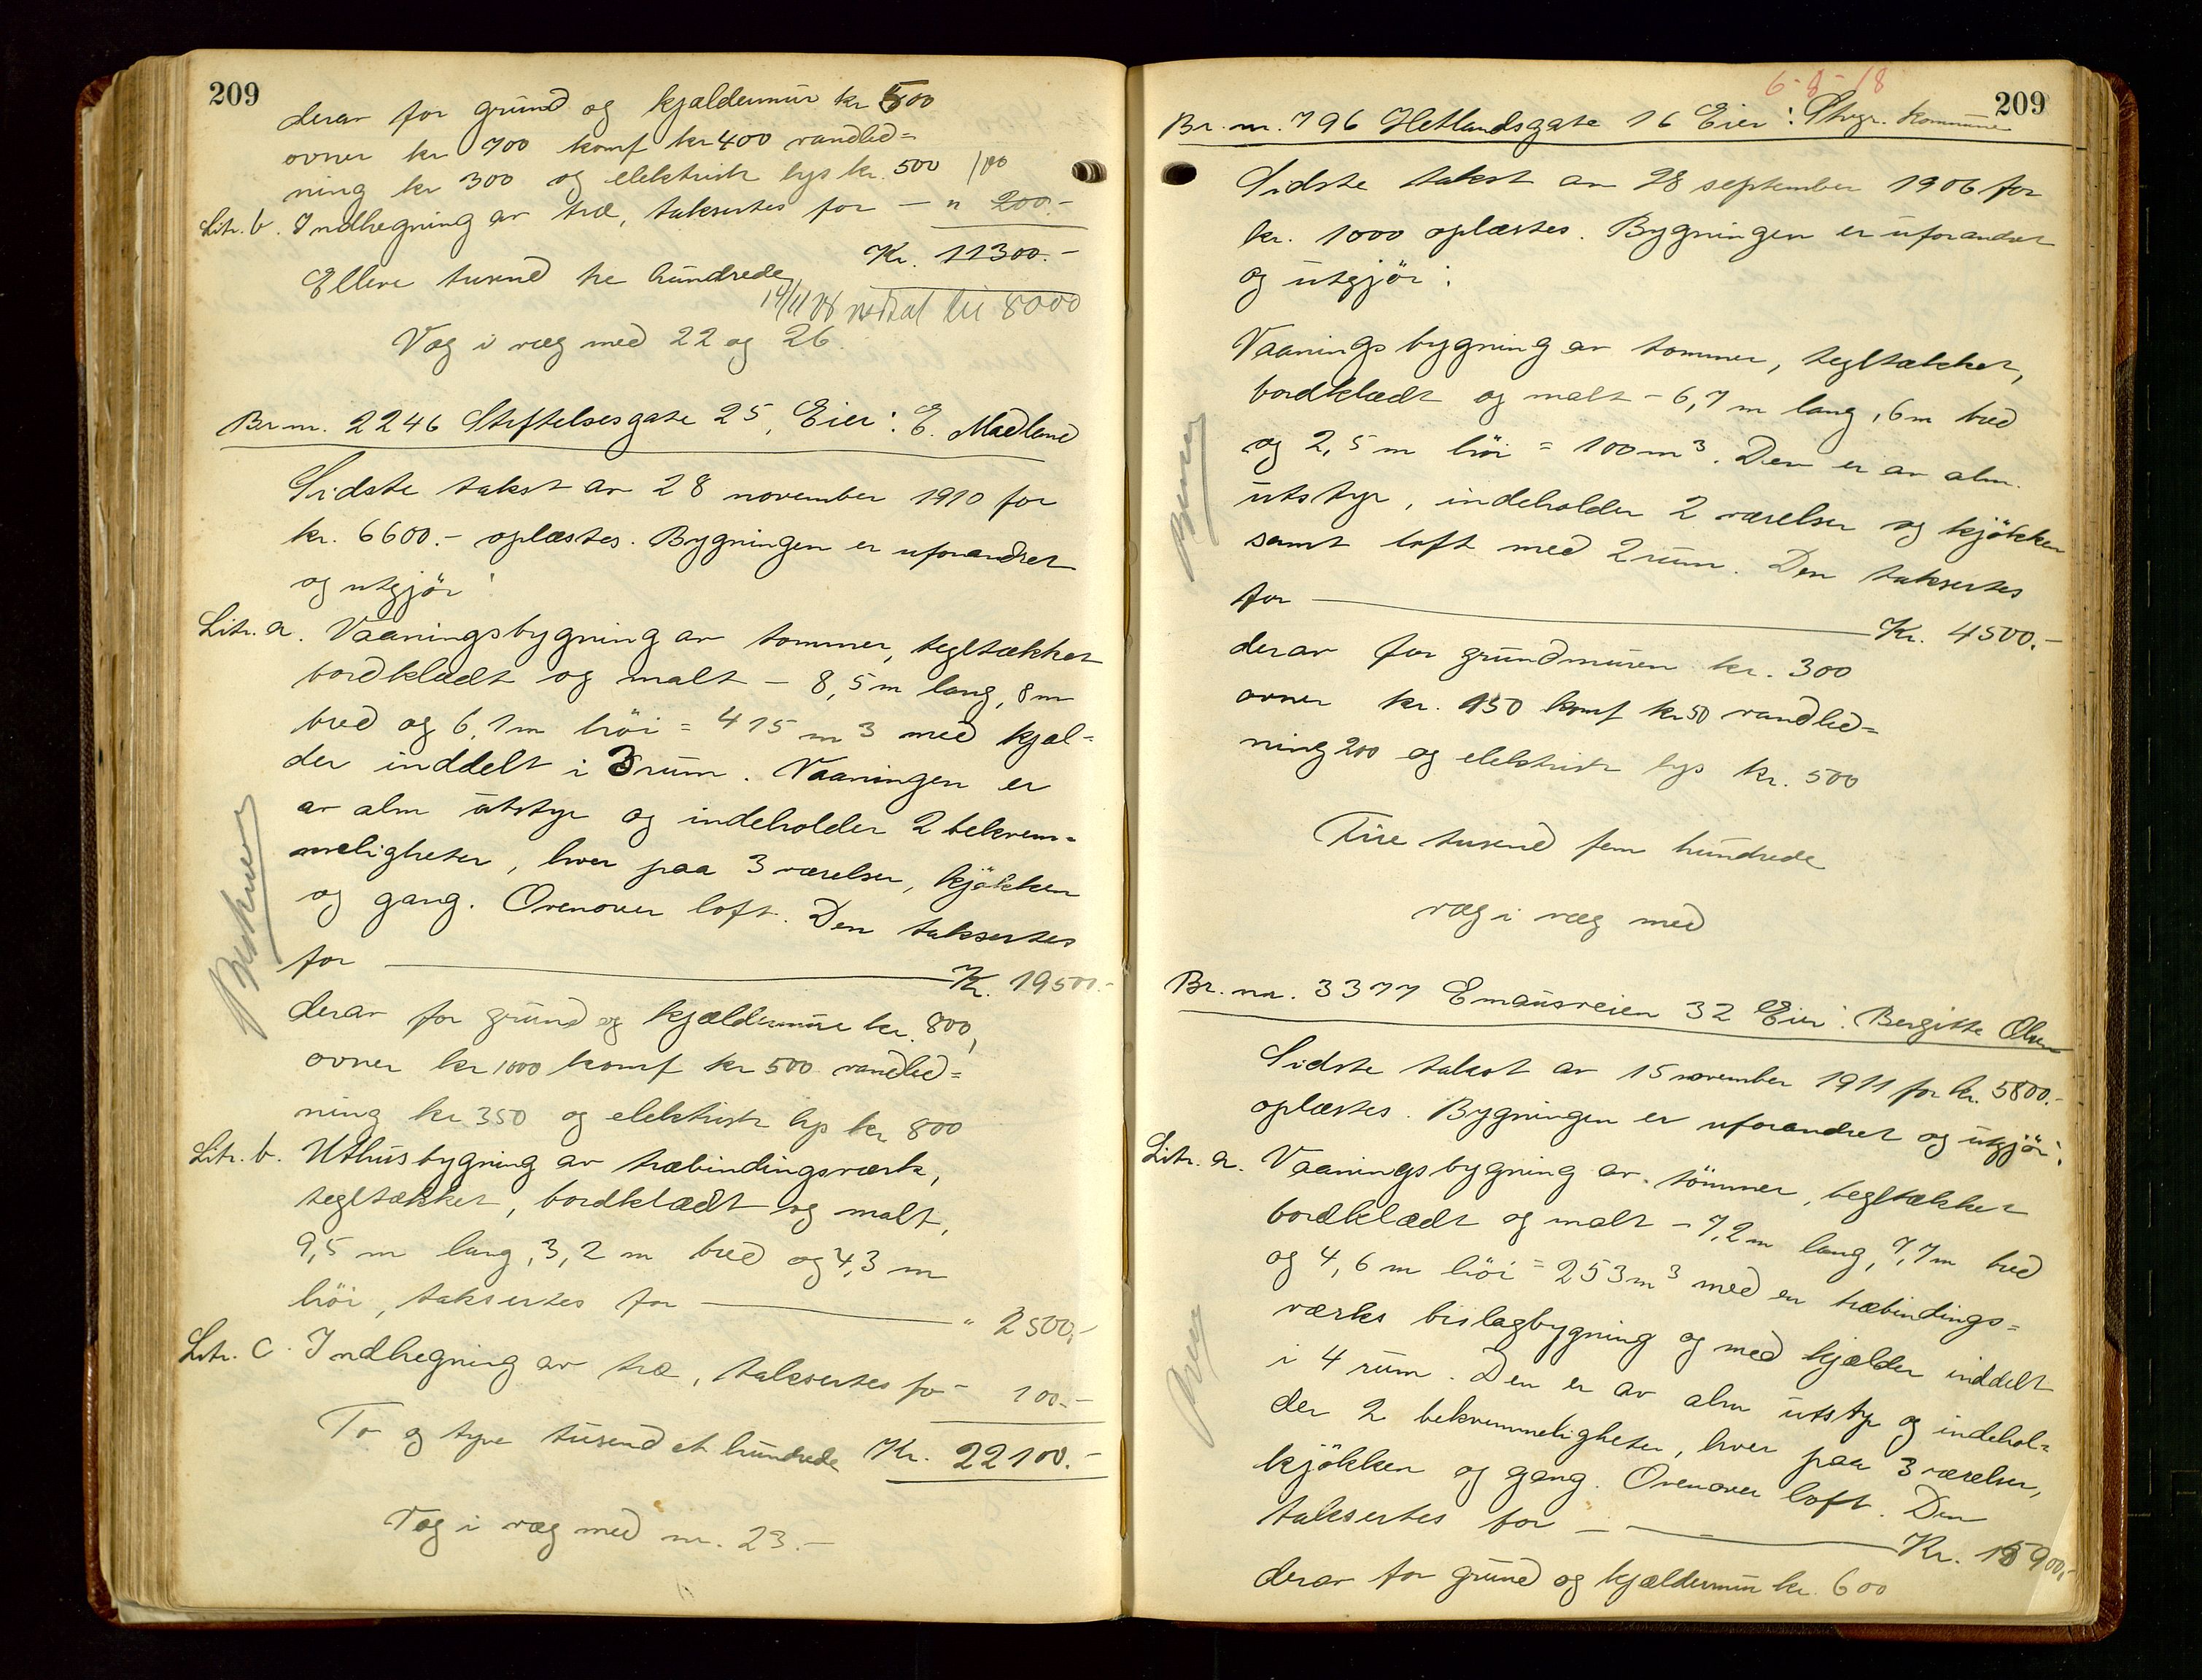 209
derav for grund og kjældermur kr 500
ovner kr 700 komf kr 400 vandled=
ning kr 300 og elektrisk lys kr. 500 100
Litr. b. Indhegning av træ, taksertes for — " 200.-
Kr. 11300.-
Elleve tusend tre hundrede
nedsat til 8000
Væg i væg med 22 og 26.
Br. nr. 2246 Stiftelsesgate 25, Eier: E. Madland
Sidste takst av 28 november 1910 for
kr. 6600.- oplæstes. Bygningen er uforandret
og utgjör:
Litr. a. Vaaningsbygning av tømmer, tegltækket
bordklædt og malt - 8,5 m lang, 8 m
bred og 6,1 m höi = 415 m3 med kjæl=
der inddelt i 3 rum. Vaaningen er
av alm utstyr og indeholder 2 bekvem=
meligheter, hver paa 3 værelser, kjökken
og gang. Ovenover loft. Den taksertes
for — Kr. 19500.-
derav for grund og kjældermur kr. 800,
ovner kr 1000 komf kr 500 vandled=
ning kr 350 og elektrisk lys kr 800
Litr. b. Uthusbygning av træbindingsværk,
tegltækket, bordklædt og malt,
9,5 m lang, 3,2 m bred og 4,3 m
höi, taksertes for — " 2500,-
Litr. C. Indhegning av træ, taksertes for - 100.-
To og tyve tusend et hundrede Kr. 22100.-
Væg i væg med nr. 23.-
209
6-8-18
Br. nr. 796 Hetlandsgate 16 Eier: Stvgr. Kommune
Sidste takst av 28 september 1906 for
kr. 1000 oplæstes. Bygningen er uforandret
og utgjör:
Vaaningsbygning av tømmer, tegltækket,
bordklædt og malt - 6,7 m lang, 6 m bred
og 2,5 m höi = 100 m3. Den er av alm.
utstyr, indeholder 2 værelser og kjökken
samt loft med 2 rum. Den taksertes
for — Kr. 4500.-
derav for grundmuren kr. 300
ovner kr. 150 komf kr 50 vandled=
ning 200 og elektrisk lys kr. 500
Fire tusend fem hundrede
væg i væg med
Br. nr. 3377 Emausveien 32 Eier: Bergitte Olsen
Sidste takst av 15 november 1911 for kr. 5800.-
oplæstes. Bygningen er uforandret og utgjör:
Litr. a. Vaaningsbygning av tömmer, tegltækket
bordklædt og malt - 7,2 m lang, 7,7 m bred
og 4,6 m höi = 253 m3 med en træbindings=
værks bislagbygning og med kjælder inddelt
i 4 rum. Den er av alm utstyr og indehol=
der 2 bekvemmeligheter, hver paa 3 værelser,
kjökken og gang. Ovenover loft. Den
taksertes for — Kr. 15900,-
derav for grund og kjældermur kr. 600